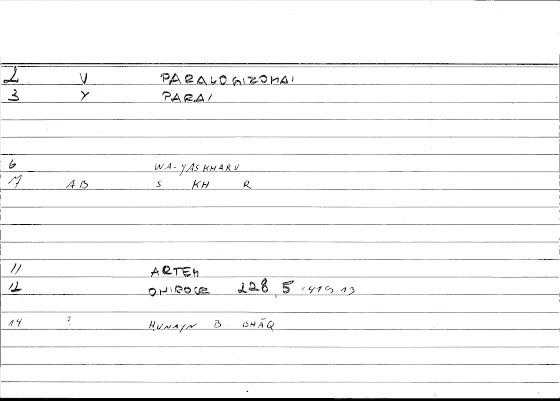 2 V PARALOGIZOMAI
3 Y PARAI
6 WA-YASKHARU
7 AB S KH R
11 ARTEM
12 ONIROCR 228, 5 = 419.13
14 ? HUNAYN B. ISHĀQ